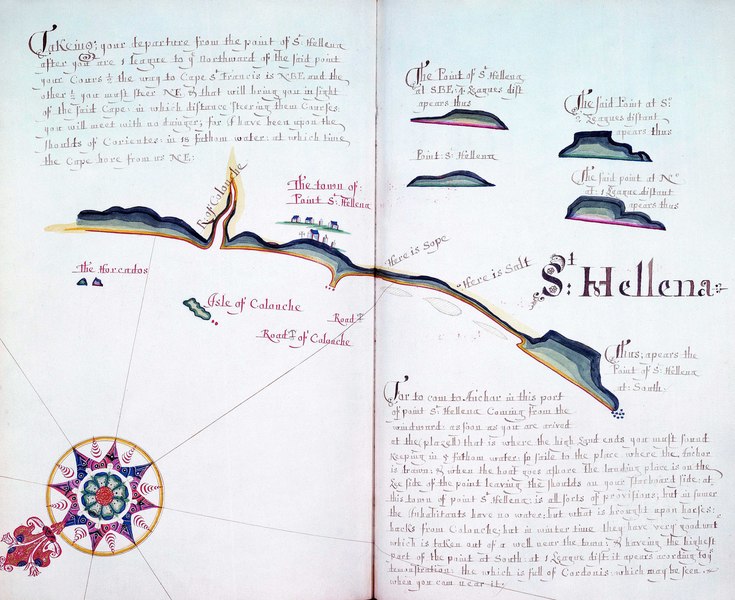 Takeing; your departure from the point of St Hellena
after you are 1 league to ye Northward of the said point
your Cours ½ the way to Cape St Francis is NBE and the
other ½ you must steer NE & that will bring you in sight
of the said Cape: in which distance steering them Courses:
you will meet with no dainger; for I have been upon the
shoulds of Corientes: in 15 fathom water: at which time
the Cape bore from us NE:
The Point of St Hellena
at SBE: 4 Leagues dist
apears thus
Point: St Hellena
The said Point at St:
5 Leagues distant
apears thus
The said point at No
at: 1 League distant
apears thus
River Colonche
The town of:
Point St: Hellena
Here is Sope
Here is Salt
St: Hellena
The Horcados
Isle of Calonche
Road
Road of Calonche
Thus; apears the
Point of St: Hellena
at: South
For to com to Anchor in this port
of point St Hellena Coming from the
windward: as soon as you are arived
at the that is where the high Land ends you must sound
keeping in 8 fathom water: & saile to the place where the Anchor
is drawn: & when the boat goes ashore The landing place is on the
Lee side of the point leaving the shoulds on your starboard side: at
this town of point St Hellena: is all sorts of provisions; but in sumer
the Inhabitants have no water; but what is brought upon horses:
backs from Colonche; bat in winter time they have very good
which is taken out of a well near the town: & having the highest
part of the point at South: at 1 League dist it apears acording to ye
demonstration: the which is full of Cordonis: which may be seen
when you com near it: